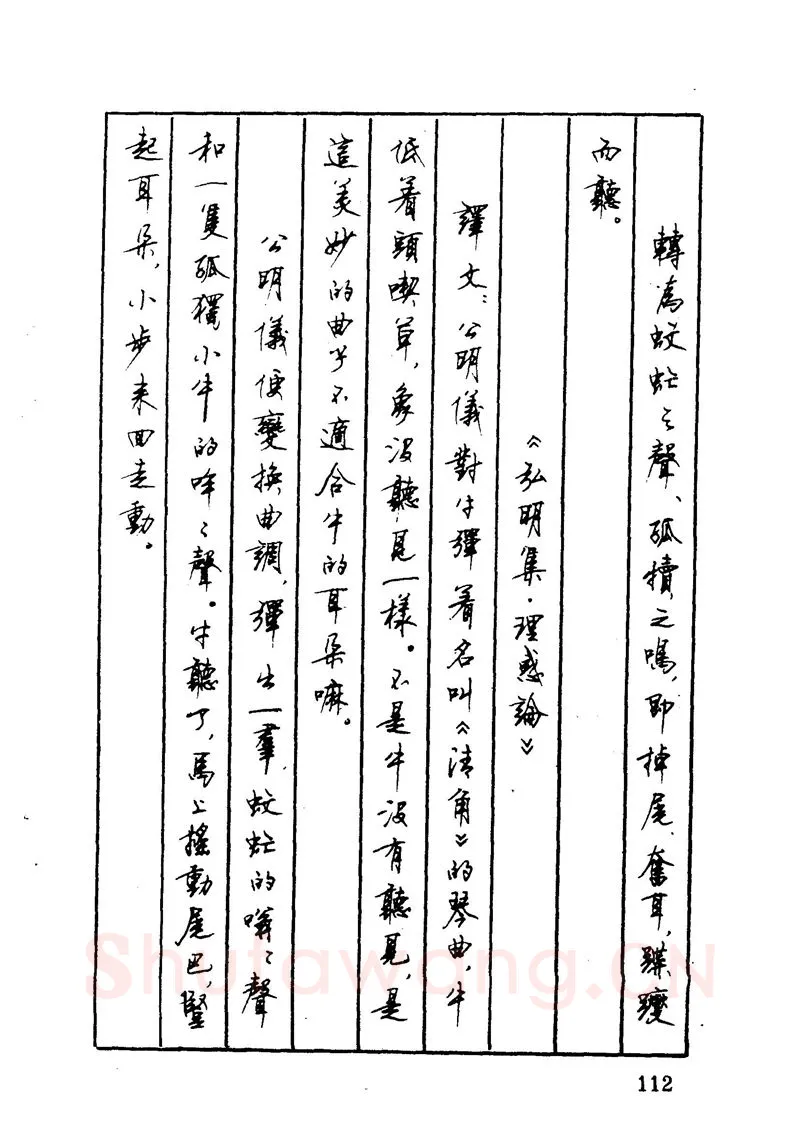 轉爲蚊虻之聲、孤犢之鳴，即掉尾、奮耳，蹀躞
而聽。
《弘明集·理惑論》
譯文：公明儀對牛彈着名叫《清角》的琴曲，牛
低着頭喫草，象没聽見一樣。不是牛没有聽見，是
這美妙的曲子不適合牛的耳朵嘛。
公明儀便變換曲調，彈出一羣蚊虻的嗡〻聲
和一隻孤獨小牛的哞〻聲。牛聽了，馬上搖動尾巴，豎
起耳朵，小步來回走動。
Shufawang.CN
112